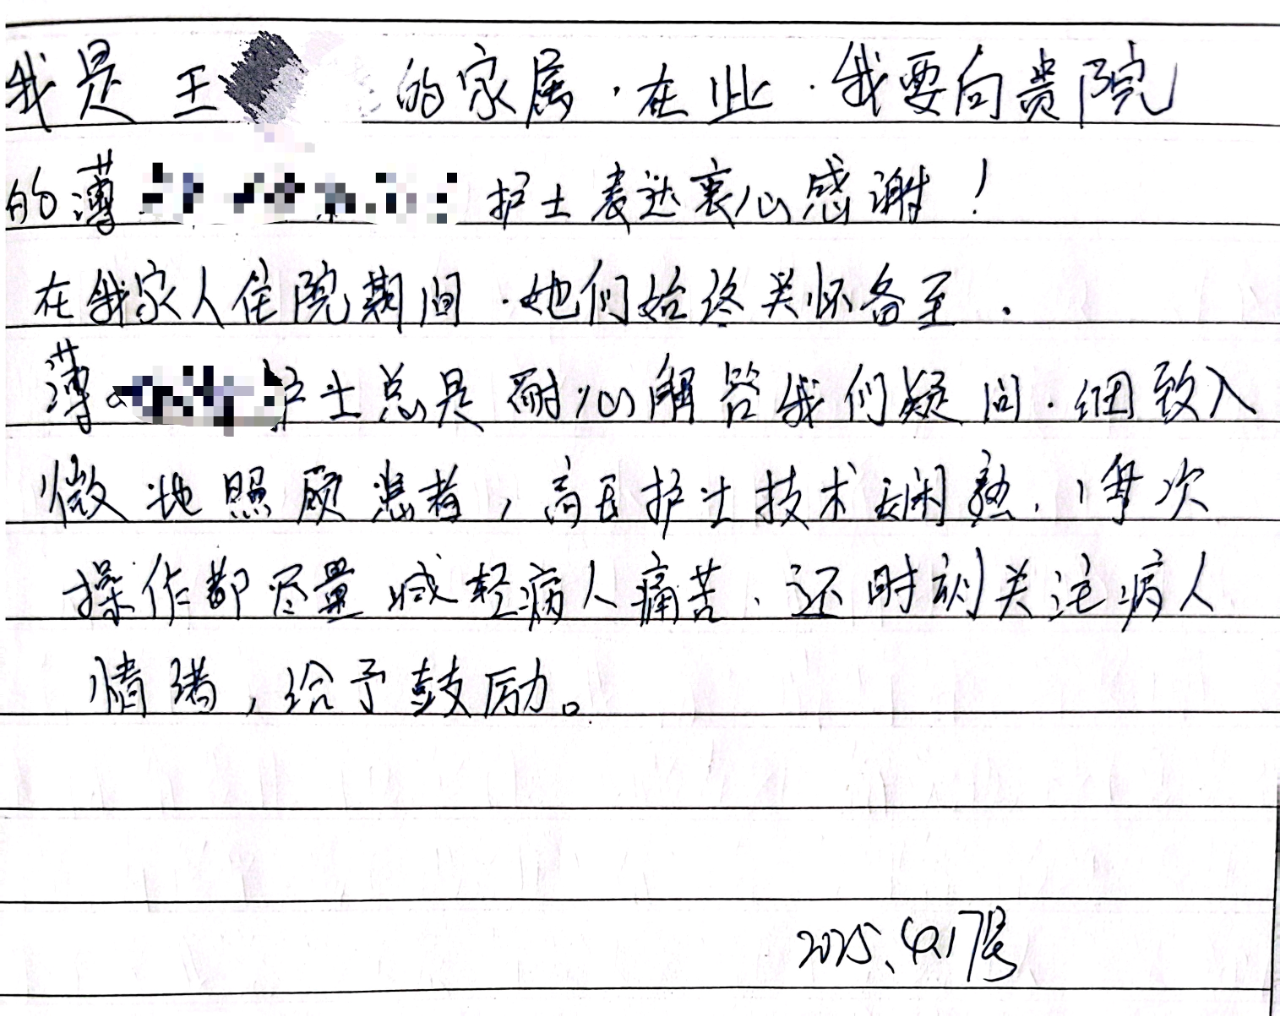 我是王 的家属.在此.我要向贵院
的薄 护士表达衷心感谢!
在我家人住院期间.她们始终关怀备至.
薄 护士总是耐心解答我们疑问.细致入
微地照顾患者,高 护士技术娴熟.每次
操作都尽量减轻病人痛苦.还时刻关注病人
情绪,给予鼓励。
2025.4.17号